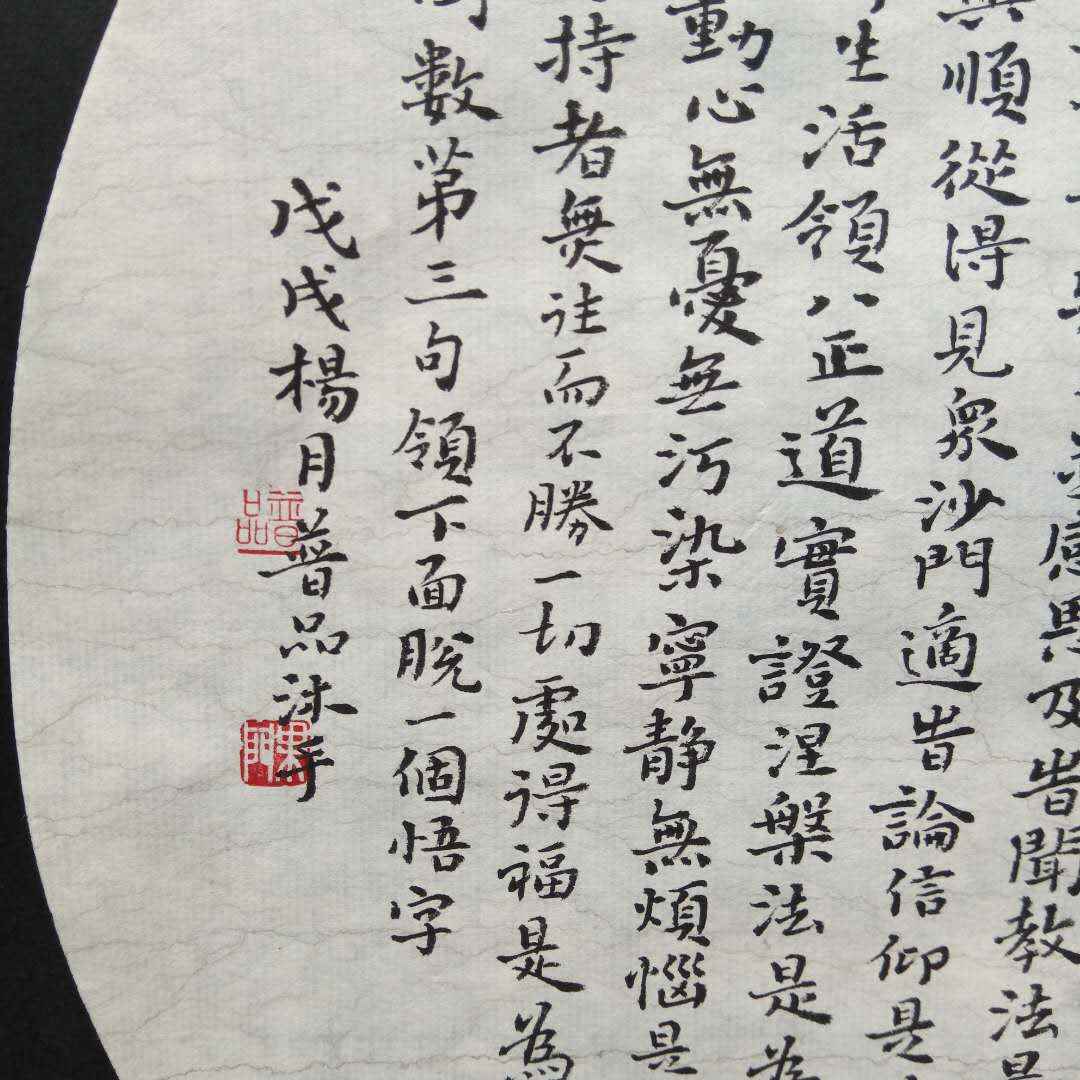 感恩及時聞教法是
與順從得見眾沙門適時論信仰是
生活領八正道實證涅槃法是為
動心無憂無污染寧靜無煩惱是
持者無往而不勝一切處得福是為
數第三句領下面脫一個悟字
戊戌楊月普品沐手
普品